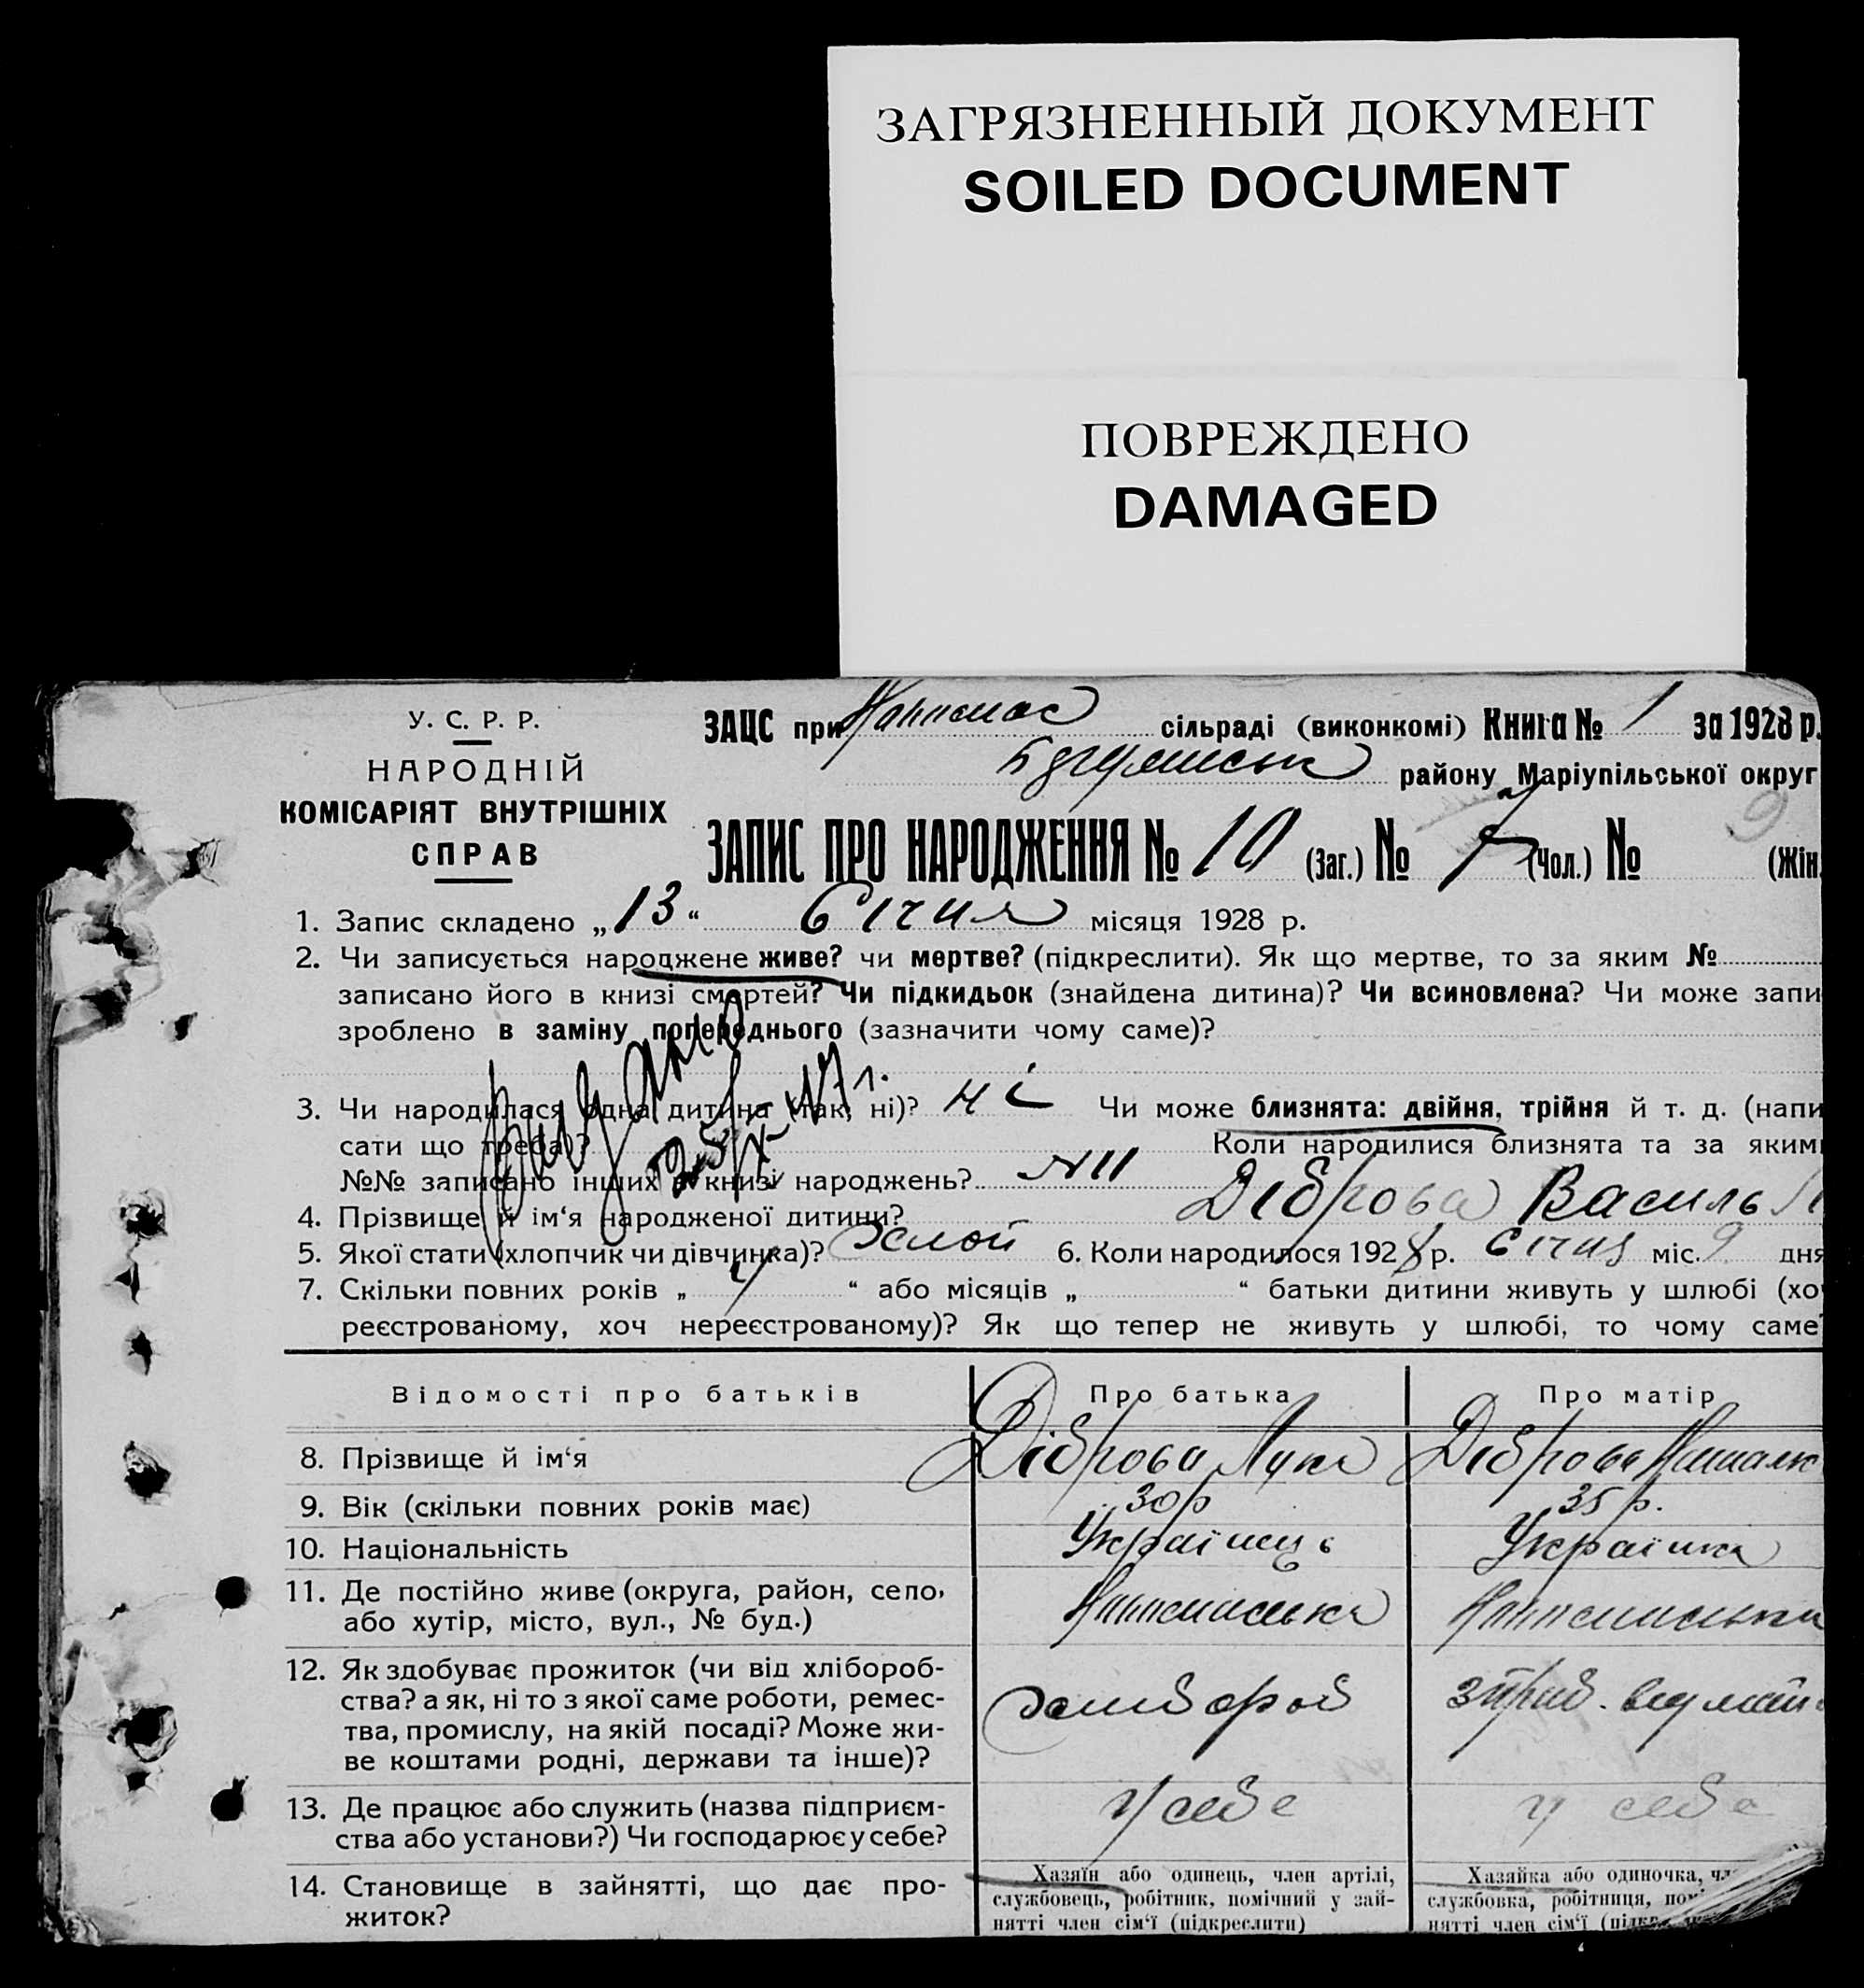 ЗАГРЯЗНЕННЫЙ ДОКУМЕНТ
SOILED DOCUMENT
ПОВРЕЖДЕНО
DAMAGED
У. С. Р. Р.
НАРОДНІЙ
КОМІСАРІЯТ ВНУТРІШНІХ
СПРАВ
ЗАЦС при сільраді (виконкомі) Книга № 1 за 1928 р.
району Маріупільської округ
ЗАПИС ПРО НАРОДЖЕННЯ № 10 (Заг.) № 7 (Чол.) № (Жін.
1. Запис складено „13“ Січня місяця 1928 р.
2. Чи записується народжене живе? чи мертве? (підкреслити). Як що мертве, то за яким №
записано його в книзі смертей? Чи підкидьок (знайдена дитина)? Чи всиновлена? Чи може запи
зроблено в заміну попереднього (зазначити чому саме)?
3. Чи народилася одна дитина (так, ні)? ні Чи може близнята: двійня, трійня й т. д. (напи
сати що треба)? Коли народилися близнята та за яким
№№ записано інших в книзі народжень? №11
4. Прізвище й ім‘я народженої дитини? Діброва Василь
5. Якої стати (хлопчик чи дівчинка)? 6. Коли народилося 1928 р. Січня міс. 9 дня
7. Скільки повних років „ 4 “ або місяців „ “ батьки дитини живуть у шлюбі (хо
реєстрованому, хоч нереєстрованому)? Як що тепер не живуть у шлюбі, то чому саме?
Відомості про батьків Про батька Про матір
8. Прізвище й ім‘я Діброва Лука Діброва
9. Вік (скільки повних років має) 30 р 35 р.
10. Національність Українець Українка
11. Де постійно живе (округа, район, село,
або хутір, місто, вул., № буд.)
12. Як здобуває прожиток (чи від хлібороб-
ства? а як, ні то з якої саме роботи, ремес-
тва, промислу, на якій посаді? Може жи-
ве коштами родні, держави та інше)?
13. Де працює або служить (назва підприєм-
ства або установи?) Чи господарює у себе?
у себе у себе
14. Становище в зайнятті, що дає про-
житок?
Хазяїн або одинець, член артілі,
службовець, робітник, помічний у зай-
нятті член сім‘ї (підкреслити)
Хазяйка або одиночка,
службовка, робітниця,
нятті член сім‘ї